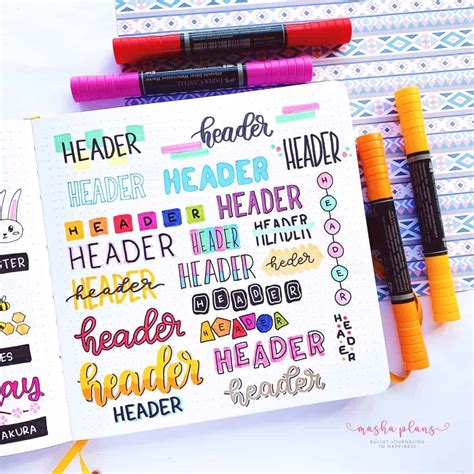 HEADER
header
HEADER
HEADER
HEADER
HEADER
HEADER
HEADER
HEADER
HEADER
HEADER
header
HEADER
heder
header
HEADER
HEADER
header
HEADER
HEADER
header
HEADER
HEADER
HEADER
STER
ES
ay
AKURA
masha plans
BULLET JOURNALING
TO HAPPINESS